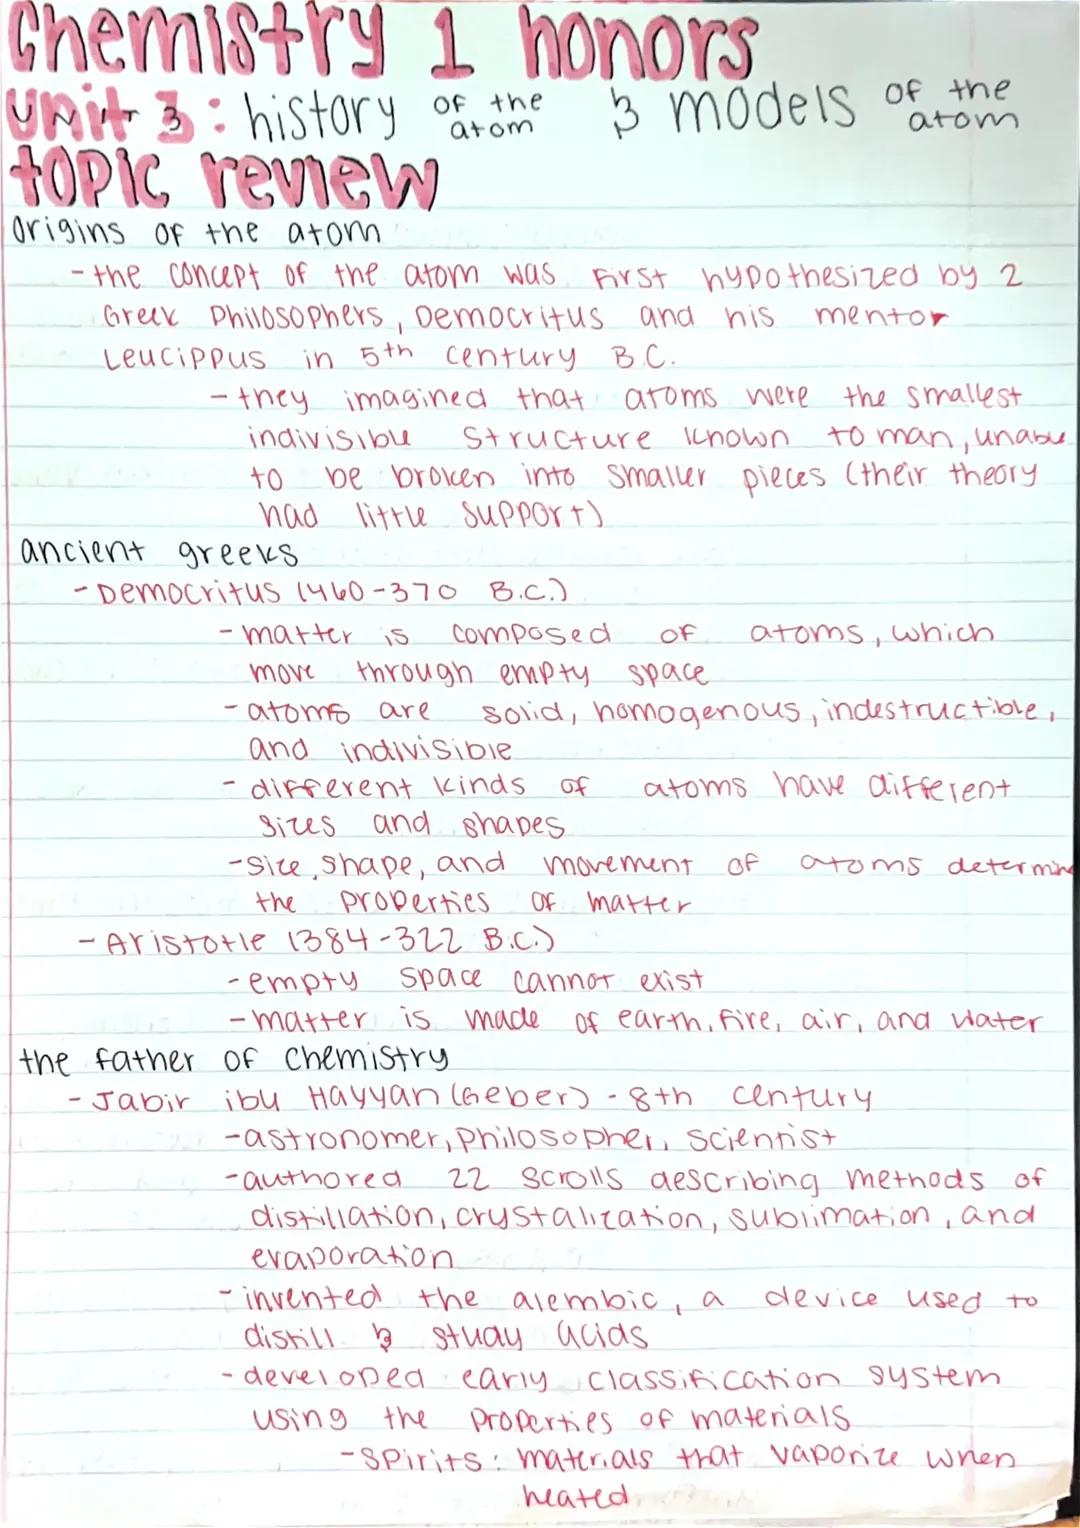 Chemistry 1 honors
Unit 3: history of the atom & models of the atom
topic review
origins of the atom
- the concept of the atom was first hypothesized by 2
Greek Philosophers, Democritus and his mentor
Leucippus in 5th century B.C.
- they imagined that atoms were the smallest
indivisible structure known to man, unable
to be broken into smaller pieces (their theory
had little support)
ancient greeks
- Democritus (460-370 B.C.)
- matter is composed of atoms, which
move through empty space
- atoms are solid, homogenous, indestructible,
and indivisible
- different kinds of atoms have different
sizes and shapes
- size, shape, and movement of atoms determine
the properties of matter
- Aristotle (384-322 B.C.)
- empty space cannot exist
- matter is made of earth, fire, air, and water
the father of chemistry
- Jabir ibu Hayyan (Geber) - 8th century
- astronomer, philosopher, scientist
- authored 22 scrolls describing methods of
distillation, crystalization, sublimation, and
evaporation
- invented the alembic, a device used to
distill & study acids
- developed early classification system
using the properties of materials
- spirits: materials that vaporize when
heated